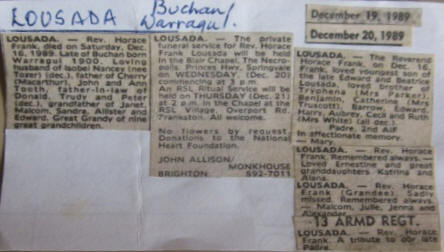 LOUSADA
Buchan/
Warragul.
December 19, 1989
December 20, 1989
LOUSADA. — Rev. Horace
Frank, died on Saturday, Dec.
16, 1989. Late of Buchan born
Warragul 1900. Loving
husband of Isobel Nancee (nee
Tozer) (dec.), father of Cherry
(Macarthur), John and Ann
Tooth, father-in-law of
Donald, Trudy and Peter
(dec.), grandfather of Janet,
Malcolm, Sandra, Allister and
Edward. Great Grandy of nine
great grandchildren.
LOUSADA. — The private
funeral service for Rev. Horace
Frank Lousada will be held
in the Blair Chapel, The Necro-
polis, Princes Hwy, Springvale
on WEDNESDAY (Dec. 20)
commencing at 3 p.m.
An RSL Ritual Service will be
held on THURSDAY (Dec. 21)
at 2 p.m. in the Chapel at the
RSL Village, Overport Rd.
Frankston. All welcome.
No flowers by request.
Donations to the National
Heart Foundation.
JOHN ALLISON/
MONKHOUSE
BRIGHTON 592-7011
LOUSADA. — The Reverend
Horace Frank, on Dec. 16,
Frank, loved youngest son of
the late Edward and Beatrice
Lousada, loved brother of
Tryphena (Mrs Parker),
Benjamin, Catherine (Mrs
Truscott), Barrow, Edward,
Harry, Aubrey, Cecil and Ruth
(Mrs White) (all dec.).
Padre, 2nd AIF
In affectionate memory.
— Mary.
LOUSADA. — Rev. Horace
Frank. Remembered always. —
Loved Ernestine and great
granddaughters Katrina and
Alana.
LOUSADA. — Rev. Horace
Frank (Grandee). Sadly
missed. Remembered always.
— Malcom, Julie, Jenna and
Alexander.
13 ARMD REGT.
LOUSADA. — Rev. Horace
Frank. A tribute to our late
Padre.